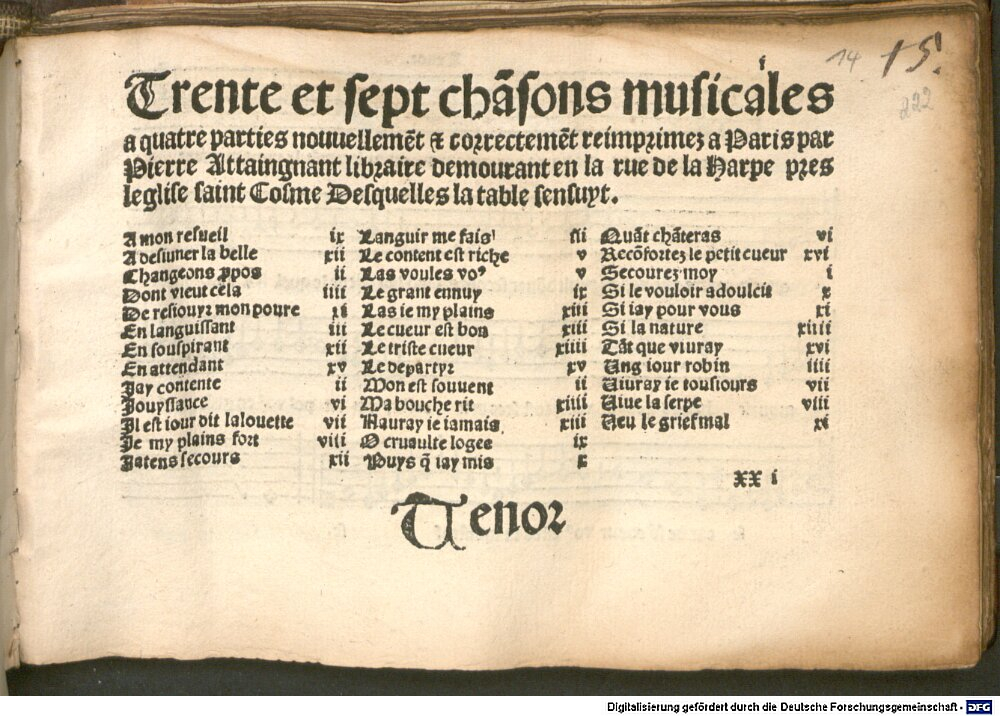 14 15.
222
i
Trente et sept chãsons musicales
a quatre parties nouuellemẽt & correctemẽt reimprimez a Paris par
Pierre Attaingnant libraire demourant en la rue de la Harpe pres
leglise saint Cosme Desquelles la table sensuyt.
A mon resueil ix
A desiuner la belle xii
Changeons ꝓpos ii
Dont vient cela iiii
De resiouyr mon poure xi
En languissant iii
En souspirant xii
En attendant xv
Jay contente ii
Jouyssance vi
Il est iour dit lalouette vii
Je my plains fort viii
Jatens secours xii
Languir me fais iii
Le content est riche v
Las voules voꝰ v
Le grant ennuy ix
Las ie my plains xiii
Le cueur est bon xiii
Le triste cueur xiiii
Le departyr xv
Mon cueur est souuent ii
Ma bouche rit xiiii
Nauray ie iamais xiii
O cruaulte logee ix
Puys q̃ iay mis x
Quãt chãteras vi
Recõfortez le petit cueur xvi
Secourez moy i
Si le vouloir adoulcit x
Si iay pour vous xi
Si la nature xiiii
Tãt que viuray xvi
Ung iour robin iiii
Uiuray ie tousiours vii
Uiue la serpe viii
Ueu le grief mal xi
xx i
Tenor
Digitalisierung gefördert durch die Deutsche Forschungsgemeinschaft - DFG